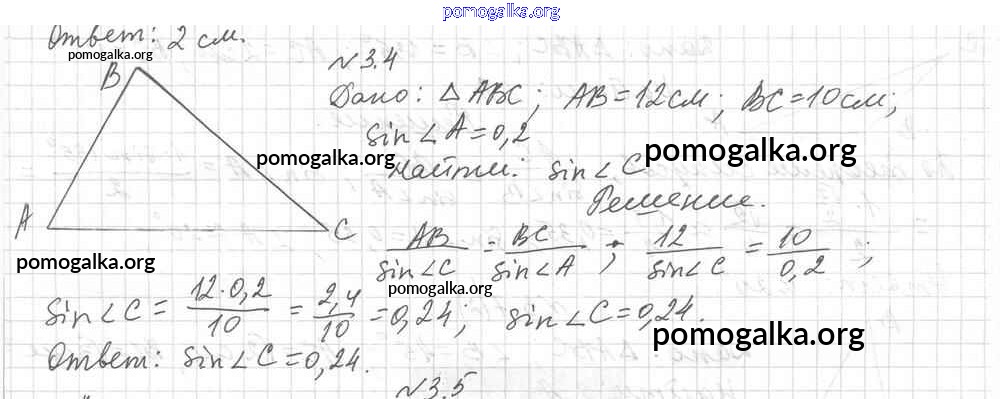 pomogalka.org
Ответ: 2 см.
pomogalka.org
№3.4
B
Дано: △ABC; AB=12см; BC=10см;
sin∠A=0,2
pomogalka.org
pomogalka.org
Найти: sin∠C
Решение.
A
C
AB/sin∠C = BC/sin∠A; 12/sin∠C = 10/0,2;
pomogalka.org
pomogalka.org
sin∠C = 12·0,2/10 = 2,4/10 = 0,24; sin∠C=0,24.
pomogalka.org
Ответ: sin∠C=0,24.
№3.5